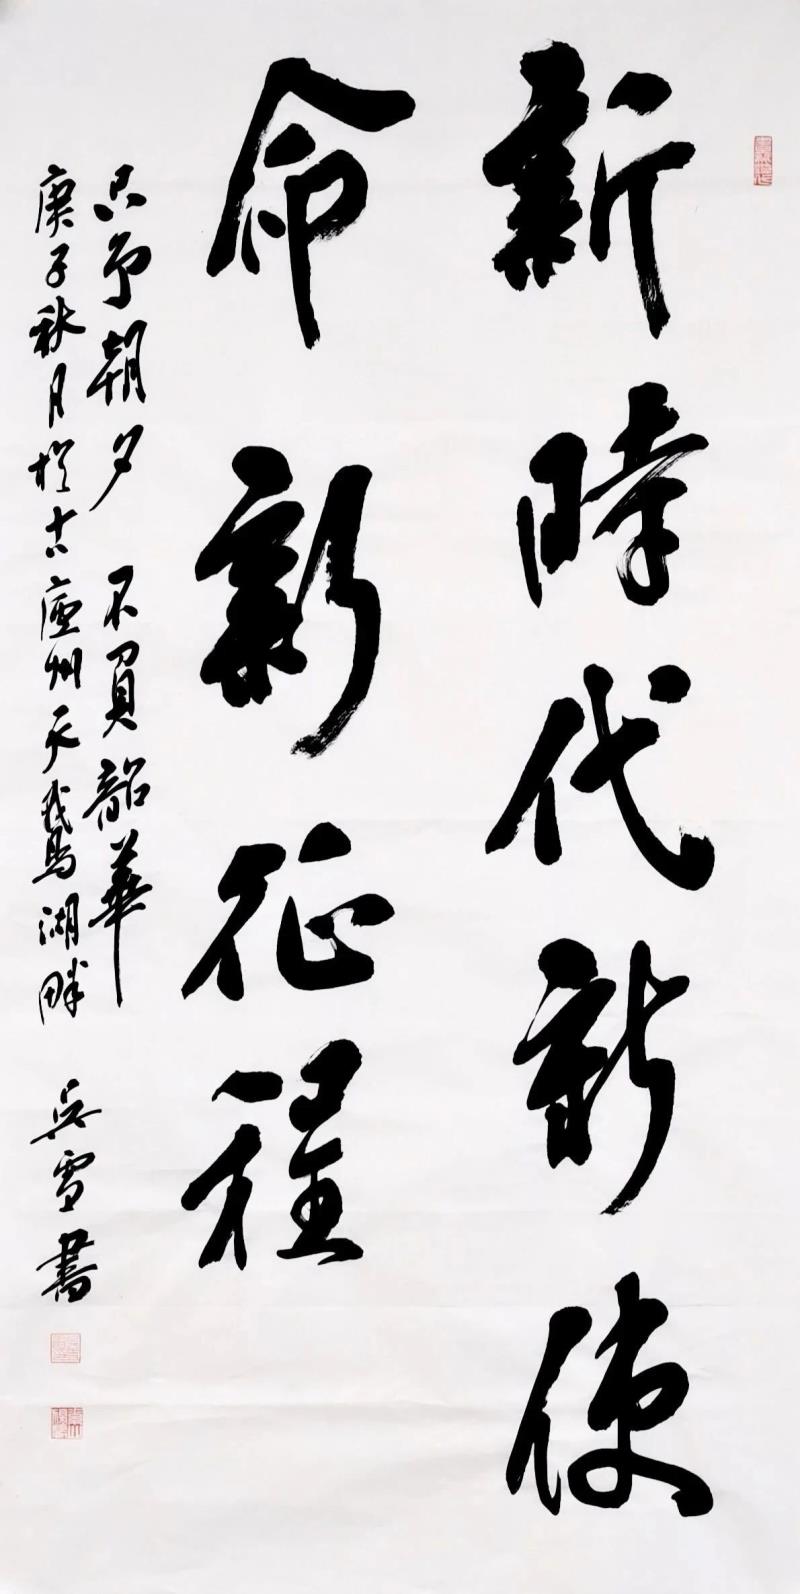 新時代新使
命新征程
只争朝夕 不負韶華
庚子秋月於古廬州天鵝湖畔 吴雪書